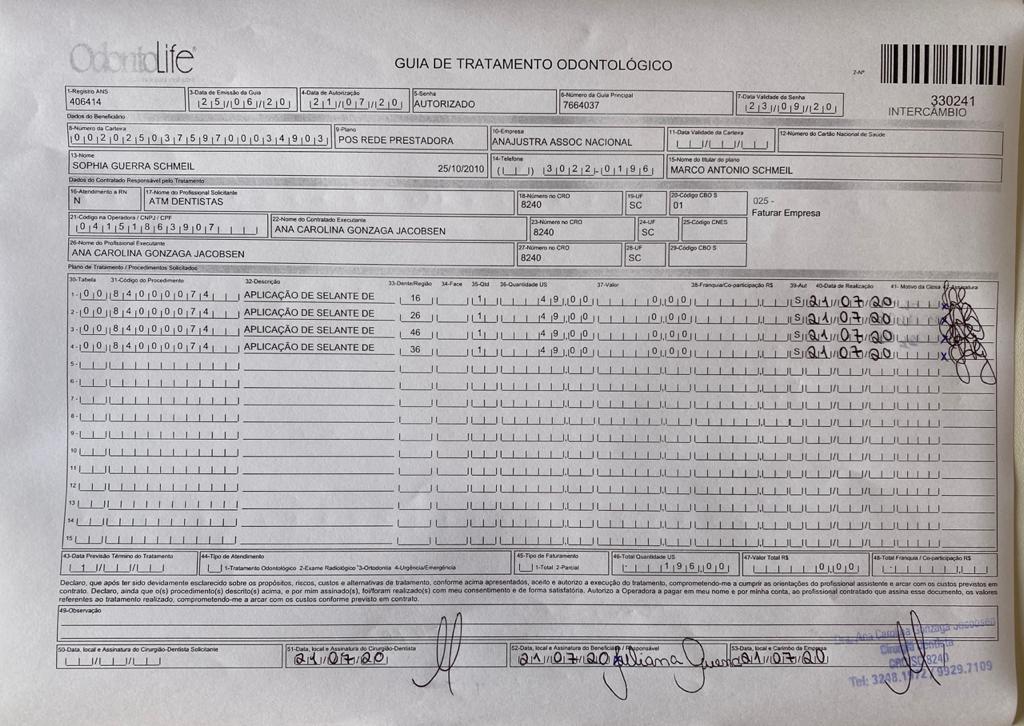 OdontoLife
GUIA DE TRATAMENTO ODONTOLÓGICO
2-Nº
330241
INTERCÂMBIO
1-Registro ANS 406414
3-Data de Emissão da Guia 25/06/20
4-Data de Autorização 21/07/20
5-Senha AUTORIZADO
6-Número da Guia Principal 7664037
7-Data Validade da Senha 23/09/20
Dados do Beneficiário
8-Número da Carteira 00202503759700034903
9-Plano POS REDE PRESTADORA
10-Empresa ANAJUSTRA ASSOC NACIONAL
11-Data Validade da Carteira
12-Número do Cartão Nacional de Saúde
13-Nome SOPHIA GUERRA SCHMEIL 25/10/2010
14-Telefone ( ) 3022-0196
15-Nome do titular do plano MARCO ANTONIO SCHMEIL
Dados do Contratado Responsável pelo Tratamento
16-Atendimento a RN N
17-Nome do Profissional Solicitante ATM DENTISTAS
18-Número no CRO 8240
19-UF SC
20-Código CBO S 01
025 -
Faturar Empresa
21-Código na Operadora / CNPJ / CPF 04151863907
22-Nome do Contratado Executante ANA CAROLINA GONZAGA JACOBSEN
23-Número no CRO 8240
24-UF SC
25-Código CNES
26-Nome do Profissional Executante ANA CAROLINA GONZAGA JACOBSEN
27-Número no CRO 8240
28-UF SC
29-Código CBO S
Plano de Tratamento / Procedimentos Solicitados
30-Tabela 31-Código do Procedimento 32-Descrição 33-Dente/Região 34-Face 35-Qtd 36-Quantidade US 37-Valor 38-Franquia/Co-participação R$ 39-Aut 40-Data de Realização 41- Motivo da Glosa 42-Assinatura
1- 00 84000074 APLICAÇÃO DE SELANTE DE 16 1 49,00 0,00 S 21/07/20
2- 00 84000074 APLICAÇÃO DE SELANTE DE 26 1 49,00 0,00 S 21/07/20 x
3- 00 84000074 APLICAÇÃO DE SELANTE DE 46 1 49,00 0,00 S 21/07/20 x
4- 00 84000074 APLICAÇÃO DE SELANTE DE 36 1 49,00 0,00 S 21/07/20 x
5-
6-
7-
8-
9-
10
11
12
13
14
15
43-Data Previsão Término do Tratamento
44-Tipo de Atendimento 1-Tratamento Odontológico 2-Exame Radiológico 3-Ortodontia 4-Urgência/Emergência
45-Tipo de Faturamento 1-Total 2-Parcial
46-Total Quantidade US 196,00
47-Valor Total R$ 0,00
48-Total Franquia / Co-participação R$
Declaro, que após ter sido devidamente esclarecido sobre os propósitos, riscos, custos e alternativas de tratamento, conforme acima apresentados, aceito e autorizo a execução do tratamento, comprometendo-me a cumprir as orientações do profissional assistente e arcar com os custos previstos em
contrato. Declaro, ainda que o(s) procedimento(s) descrito(s) acima, e por mim assinado(s), foi/foram realizado(s) com meu consentimento e de forma satisfatória. Autorizo a Operadora a pagar em meu nome e por minha conta, ao profissional contratado que assina esse documento, os valores
referentes ao tratamento realizado, comprometendo-me a arcar com os custos conforme previsto em contrato.
49-Observação
50-Data, local e Assinatura do Cirurgião-Dentista Solicitante
51-Data, local e Assinatura do Cirurgião-Dentista 21/07/20
52-Data, local e Assinatura do Beneficiário / Responsável 21/07/20 Juliana Guerra
53-Data, local e Carimbo da Empresa 21/07/20
Dra. Ana Carolina Gonzaga Jacobsen
Cirurgiã Dentista
CRO/SC 8240
Tel: 3248.1972 / 9929.7109